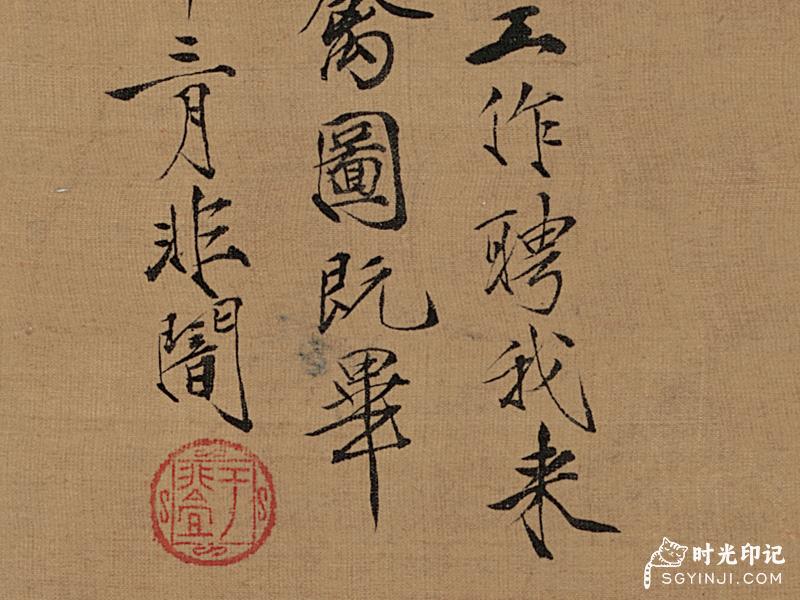 工作聘我来
禽圖既畢
三月非闇
于非
时光印记
SGYINJI.COM